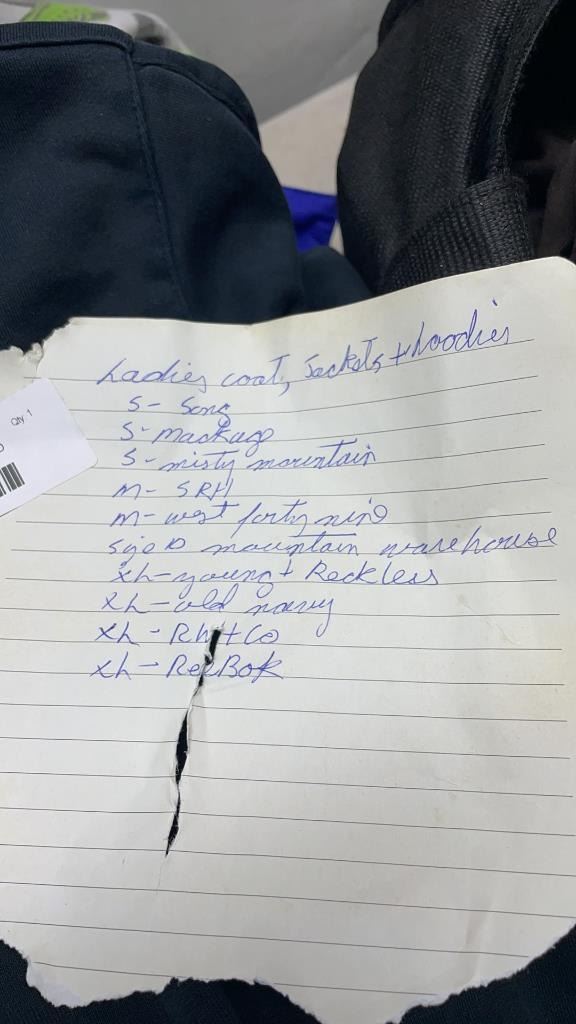 Ladies coat, Jackets + hoodies
S- Song
S- mackage
S- misty mountain
m- SRH
m- west forty nine
size 10 mountain warehouse
XL- young + Reckless
XL- old navy
XL - RW+Co
XL - ReeBok
Qty 1